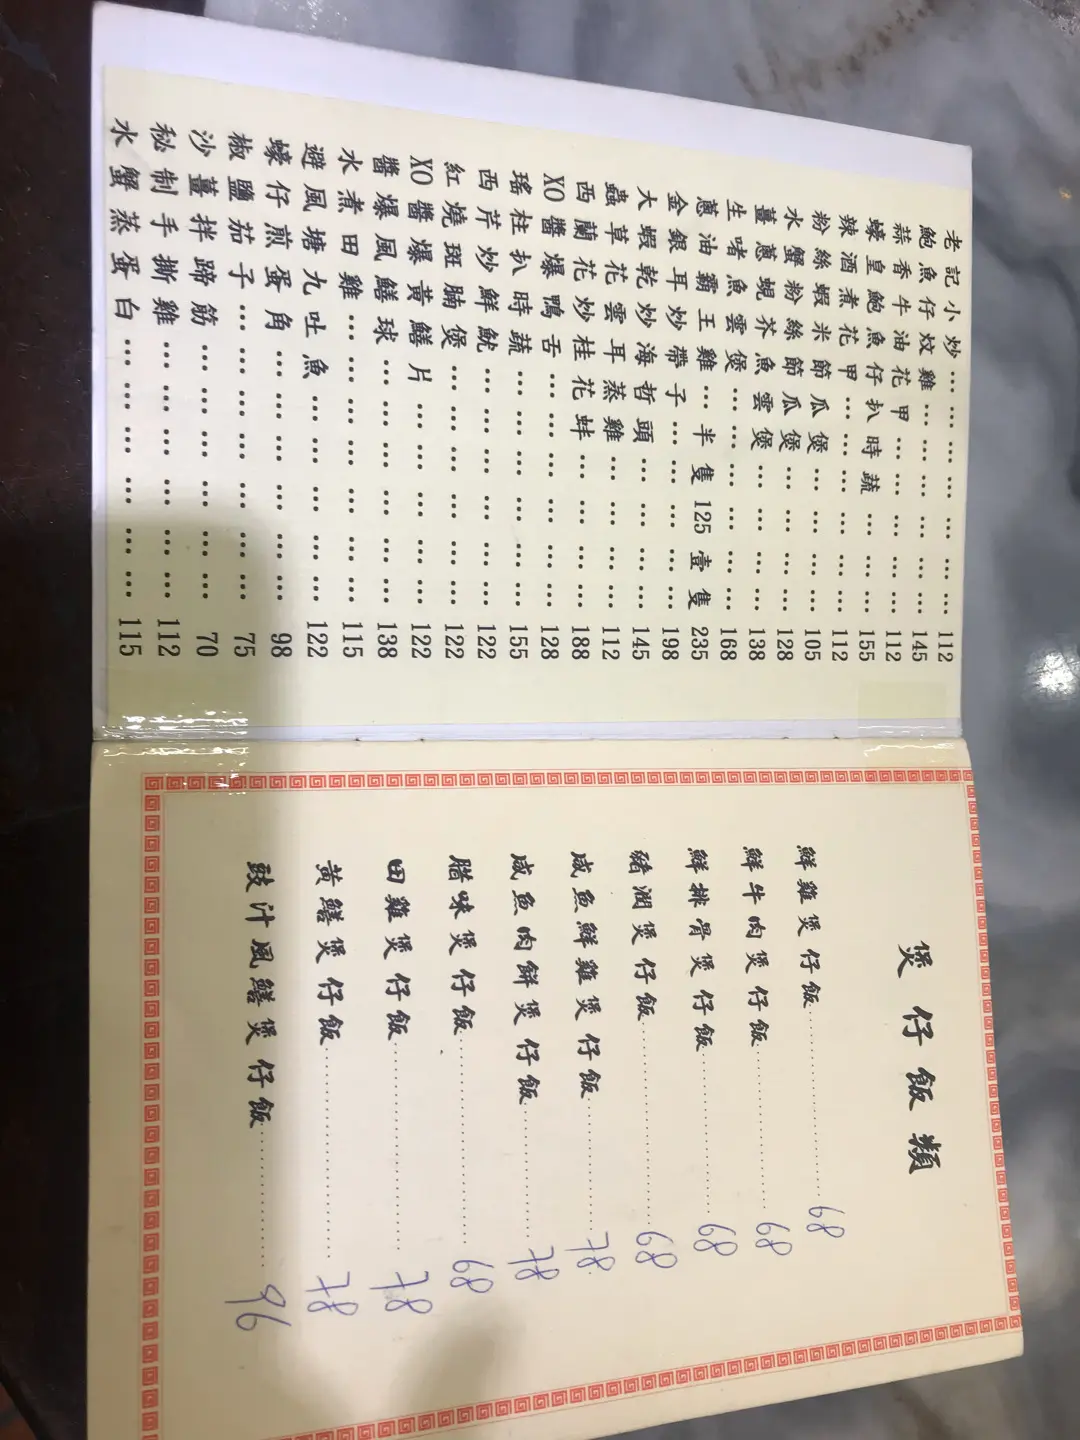 老記小炒………………112
鮑魚仔炆雞……………145
蒜香牛油花甲…………112
蠔皇鮑魚仔扒時蔬……155
辣酒煮花甲……………112
粉絲蝦米節瓜煲………105
水蟹粉絲節瓜煲………128
薑蔥蜆芥魚雲煲………138
生啫魚雲煲……………168
蔥油霸王雞…半隻125壹隻 235
金銀耳炒帶子…………198
大蝦乾炒海哲頭………145
蟲草花雲耳蒸雞………112
西蘭花炒桂花蚌………188
XO醬爆鴨舌……………128
瑤柱扒時蔬……………155
西芹炒鮮魷……………122
紅燒斑腩煲……………122
XO醬爆黃鱔片…………122
醬爆風鱔球……………138
水煮田雞………………115
避風塘九吐魚…………122
蠔仔煎蛋角……………98
椒鹽茄子………………75
沙薑拌蹄筋……………70
秘制手撕雞……………112
水蟹蒸蛋白……………115
煲仔飯類
鮮雞煲仔飯……………68
鮮牛肉煲仔飯…………68
鮮排骨煲仔飯…………68
豬潤煲仔飯……………68
咸魚鮮雞煲仔飯………78
咸魚肉餅煲仔飯………78
腊味煲仔飯……………68
田雞煲仔飯……………78
黃鱔煲仔飯……………78
豉汁風鱔煲仔飯………96